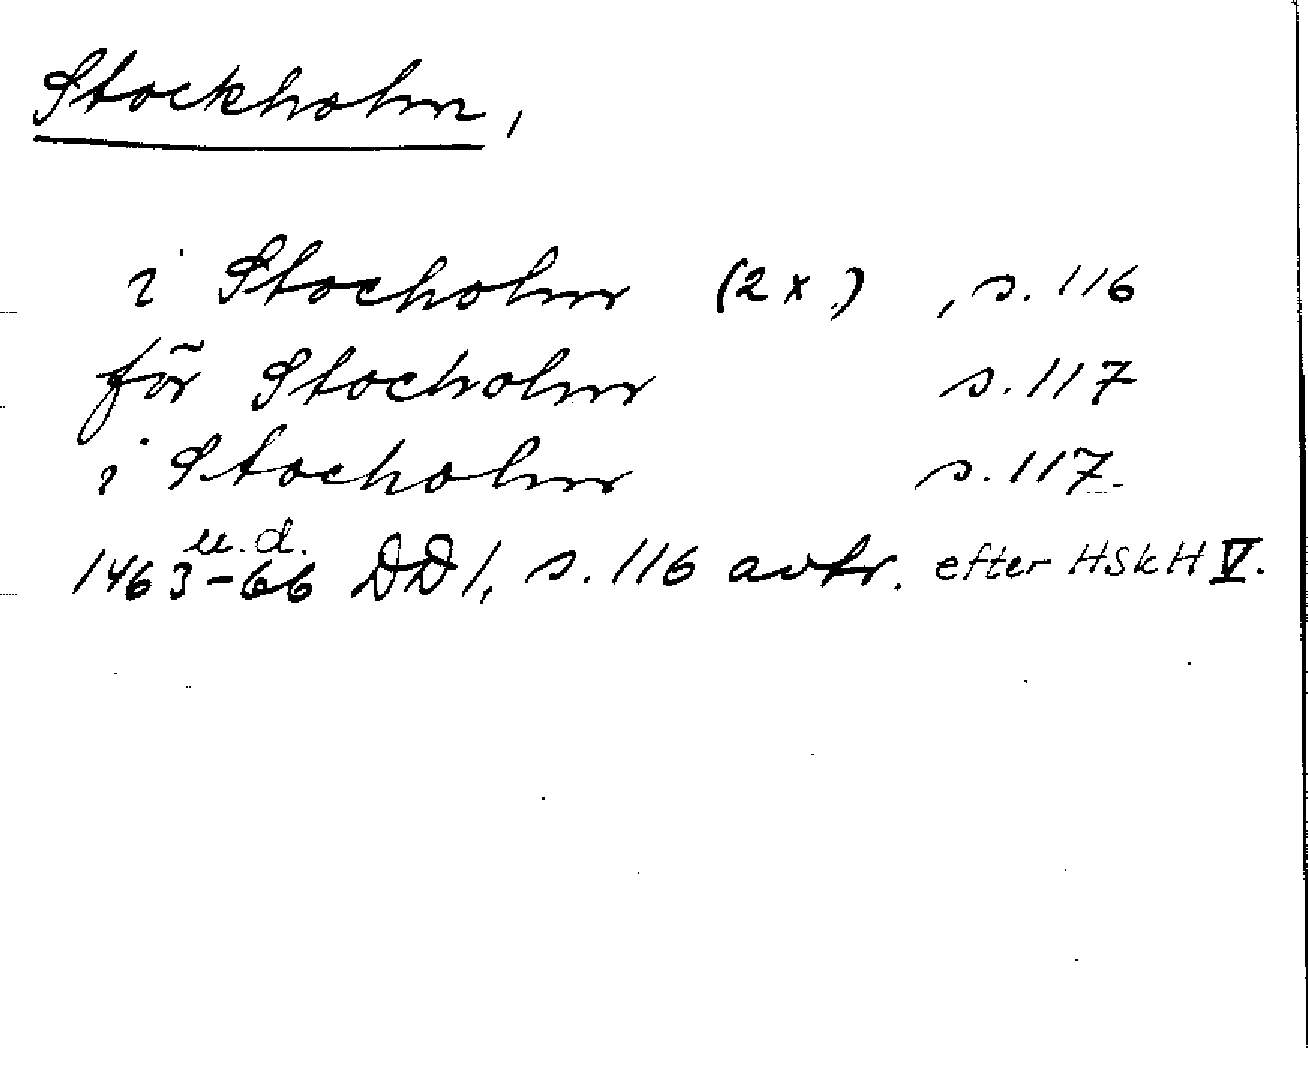 Stockholm,
i Stocholm (2 x) , s. 116
för Stocholm s. 117
i Stocholm s. 117.
u. d.
1463-66 DD 1, s. 116 avtr. efter HSkH V.